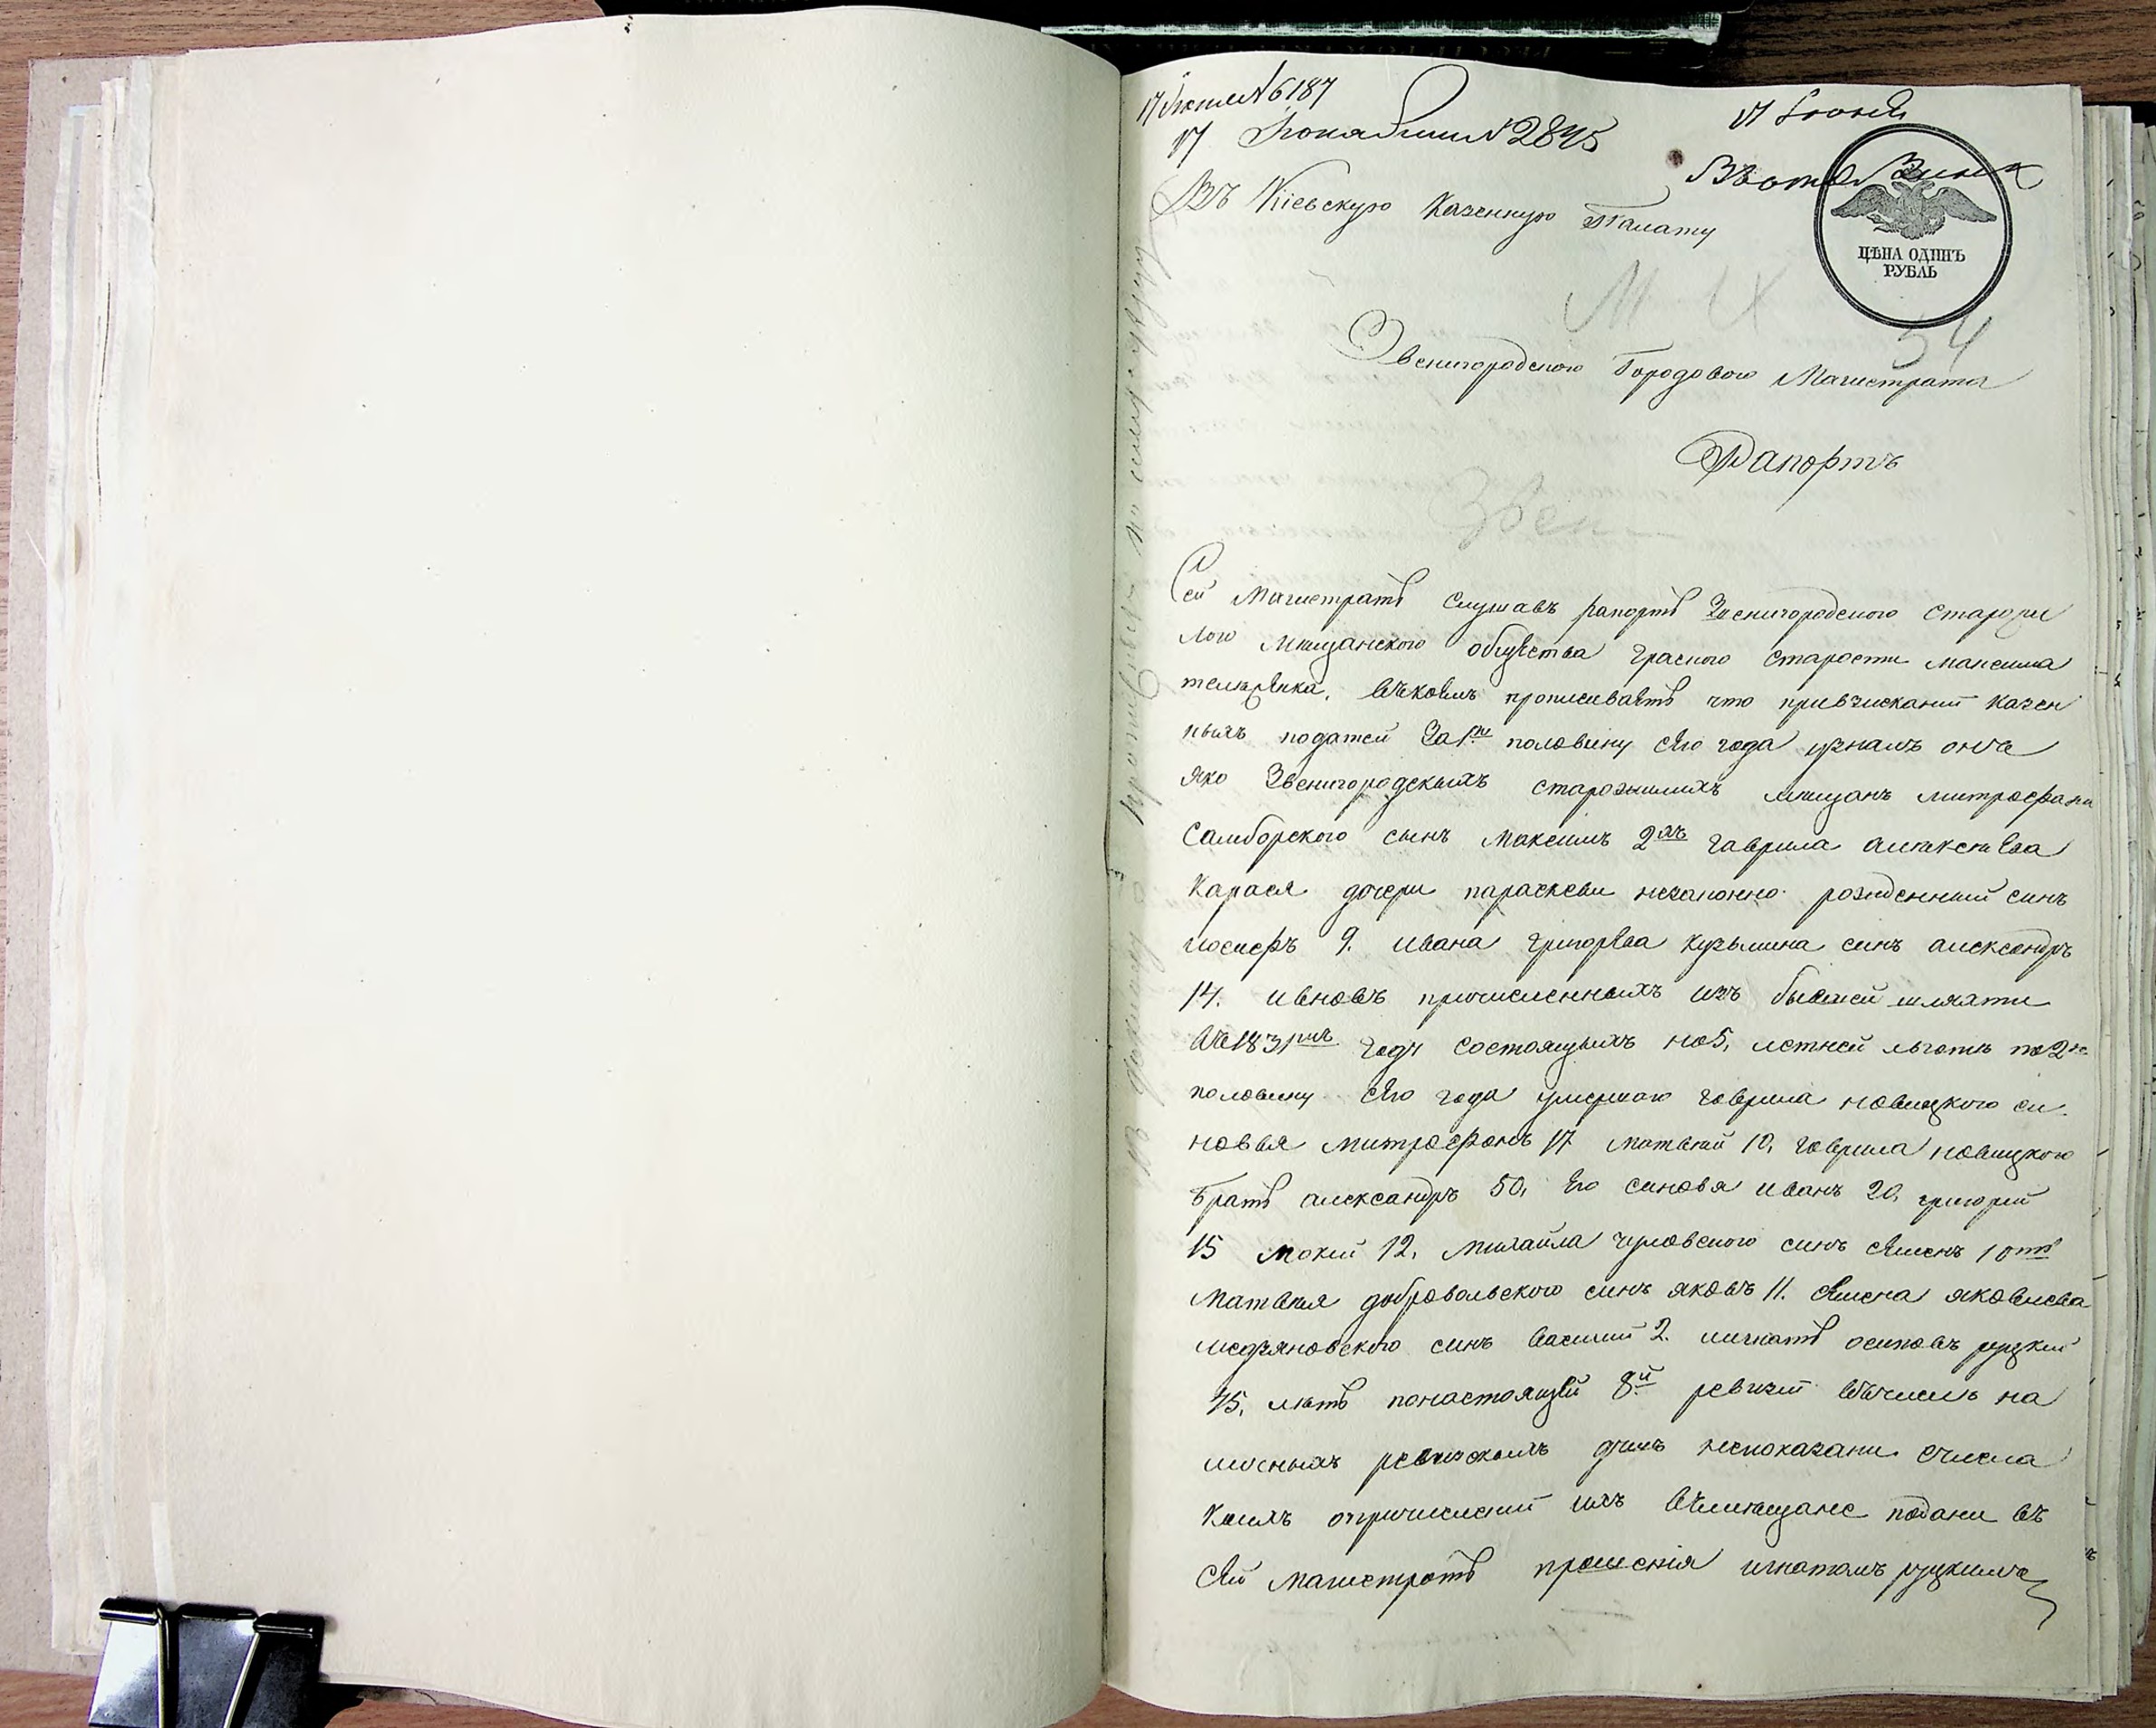 № 6187
17 июня
17 № 2845
Въ Кіевскую Казенную Палату
ЦѢНА ОДИНЪ
РУБЛЬ
54
Звенигородского Городового Магистрата
Рапортъ
Звен
Сей Магистратъ слушавъ рапортъ Звенигородского старожи
лого мещанского общества красного старости максима
вчкоемъ прописиваетъ что привзискании казен
ныхъ податей За 1ю половину сего года узналъ онъ
яко Звенигородскихъ старожилихъ мещанъ митрофана
Самборского сынъ Максимъ 2хъ гаврила алексеева
Карася дочери параскеви незаконно рожденний синъ
иосифъ 9. ивана григорева кузьмина синъ александръ
14. ивновъ причисленныхъ изъ бывшей шляхти
въ 1831мъ году состоящихъ на 5, летней льготе по 2ю
половину сего года умершаго гаврила новицкого си
новья митрофанъ 17 матвей 10, гаврила новицкого
братъ александръ 50, его синовя иванъ 20, григорий
15 мокий 12, михаила чуловского синъ семенъ 10ть
матвея добровольского синъ яковъ 11. семена яковлева
медзяновского синъ василий 2. игнатъ осиповъ руцкий
45, летъ понастоящей 8й ревизии вчисль на
личныхъ ревизскихъ душъ непоказани счисла
коихъ опричислении ихъ вмещане подани въ
сей магистратъ прошения игнатомъ руцкимъ